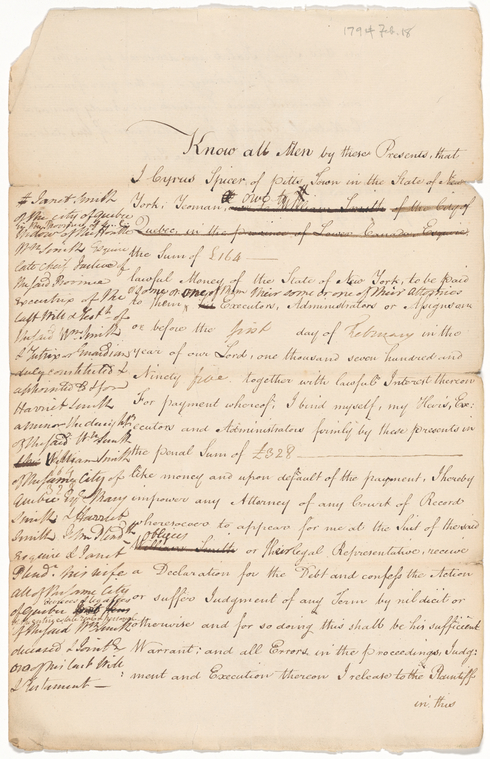 1794 Feb. 18
Know all Men by these Presents, that
I Cyrus Spicer, of Pitts Town in the State of New
York, Yeoman, owe to William Smith of the City of
Quebec, in the province of Lower Canada Esquire,
the Sum of £164
lawful Money of the State of New York, to be paid
to them some or one of them their some or one of their Attornies
Executors, Administrators or Assigns on
or before the first day of February in the
year of our Lord, one thousand seven hundred and
Ninety five, together with lawful Interest thereon
For payment whereof, I bind myself, my Heirs, Ex:
ecutors and Administrators firmly by these presents in
the penal Sum of £328
like money and upon default of the payment, I hereby
empower any Attorney of any Court of Record
whatsoever to appear for me at the Suit of the said
obligees William Smith or their legal Representative, receive
a Declaration for the Debt and confess the Action
or suffer Judgment of any Term by nil dicit or
otherwise and for so doing this shall be his sufficient
Warrant: and all Errors, in the proceedings, Judg:
ment and Execution thereon I release to the Plaintiffs
in this
Janet Smith
of the city of Quebec
Widow of the Honble
Wm Smith Esquire
Late Chief Justice of
the said Province
Executrix of the
Last Will & Testt. of
the said Wm Smith
& Tutrix or Guardian
duly constituted &
appointed & for
Harriet Smith
a minor the daughter
of the said Wm Smith
William Smith
of the same City of
Quebec Esqr & Mary
Smith & Harriet
Smith, John
Esquire & Janet
his wife
all of the same City
of Quebec
of the said Wm Smith
deceased &
of his last Will
& Testament